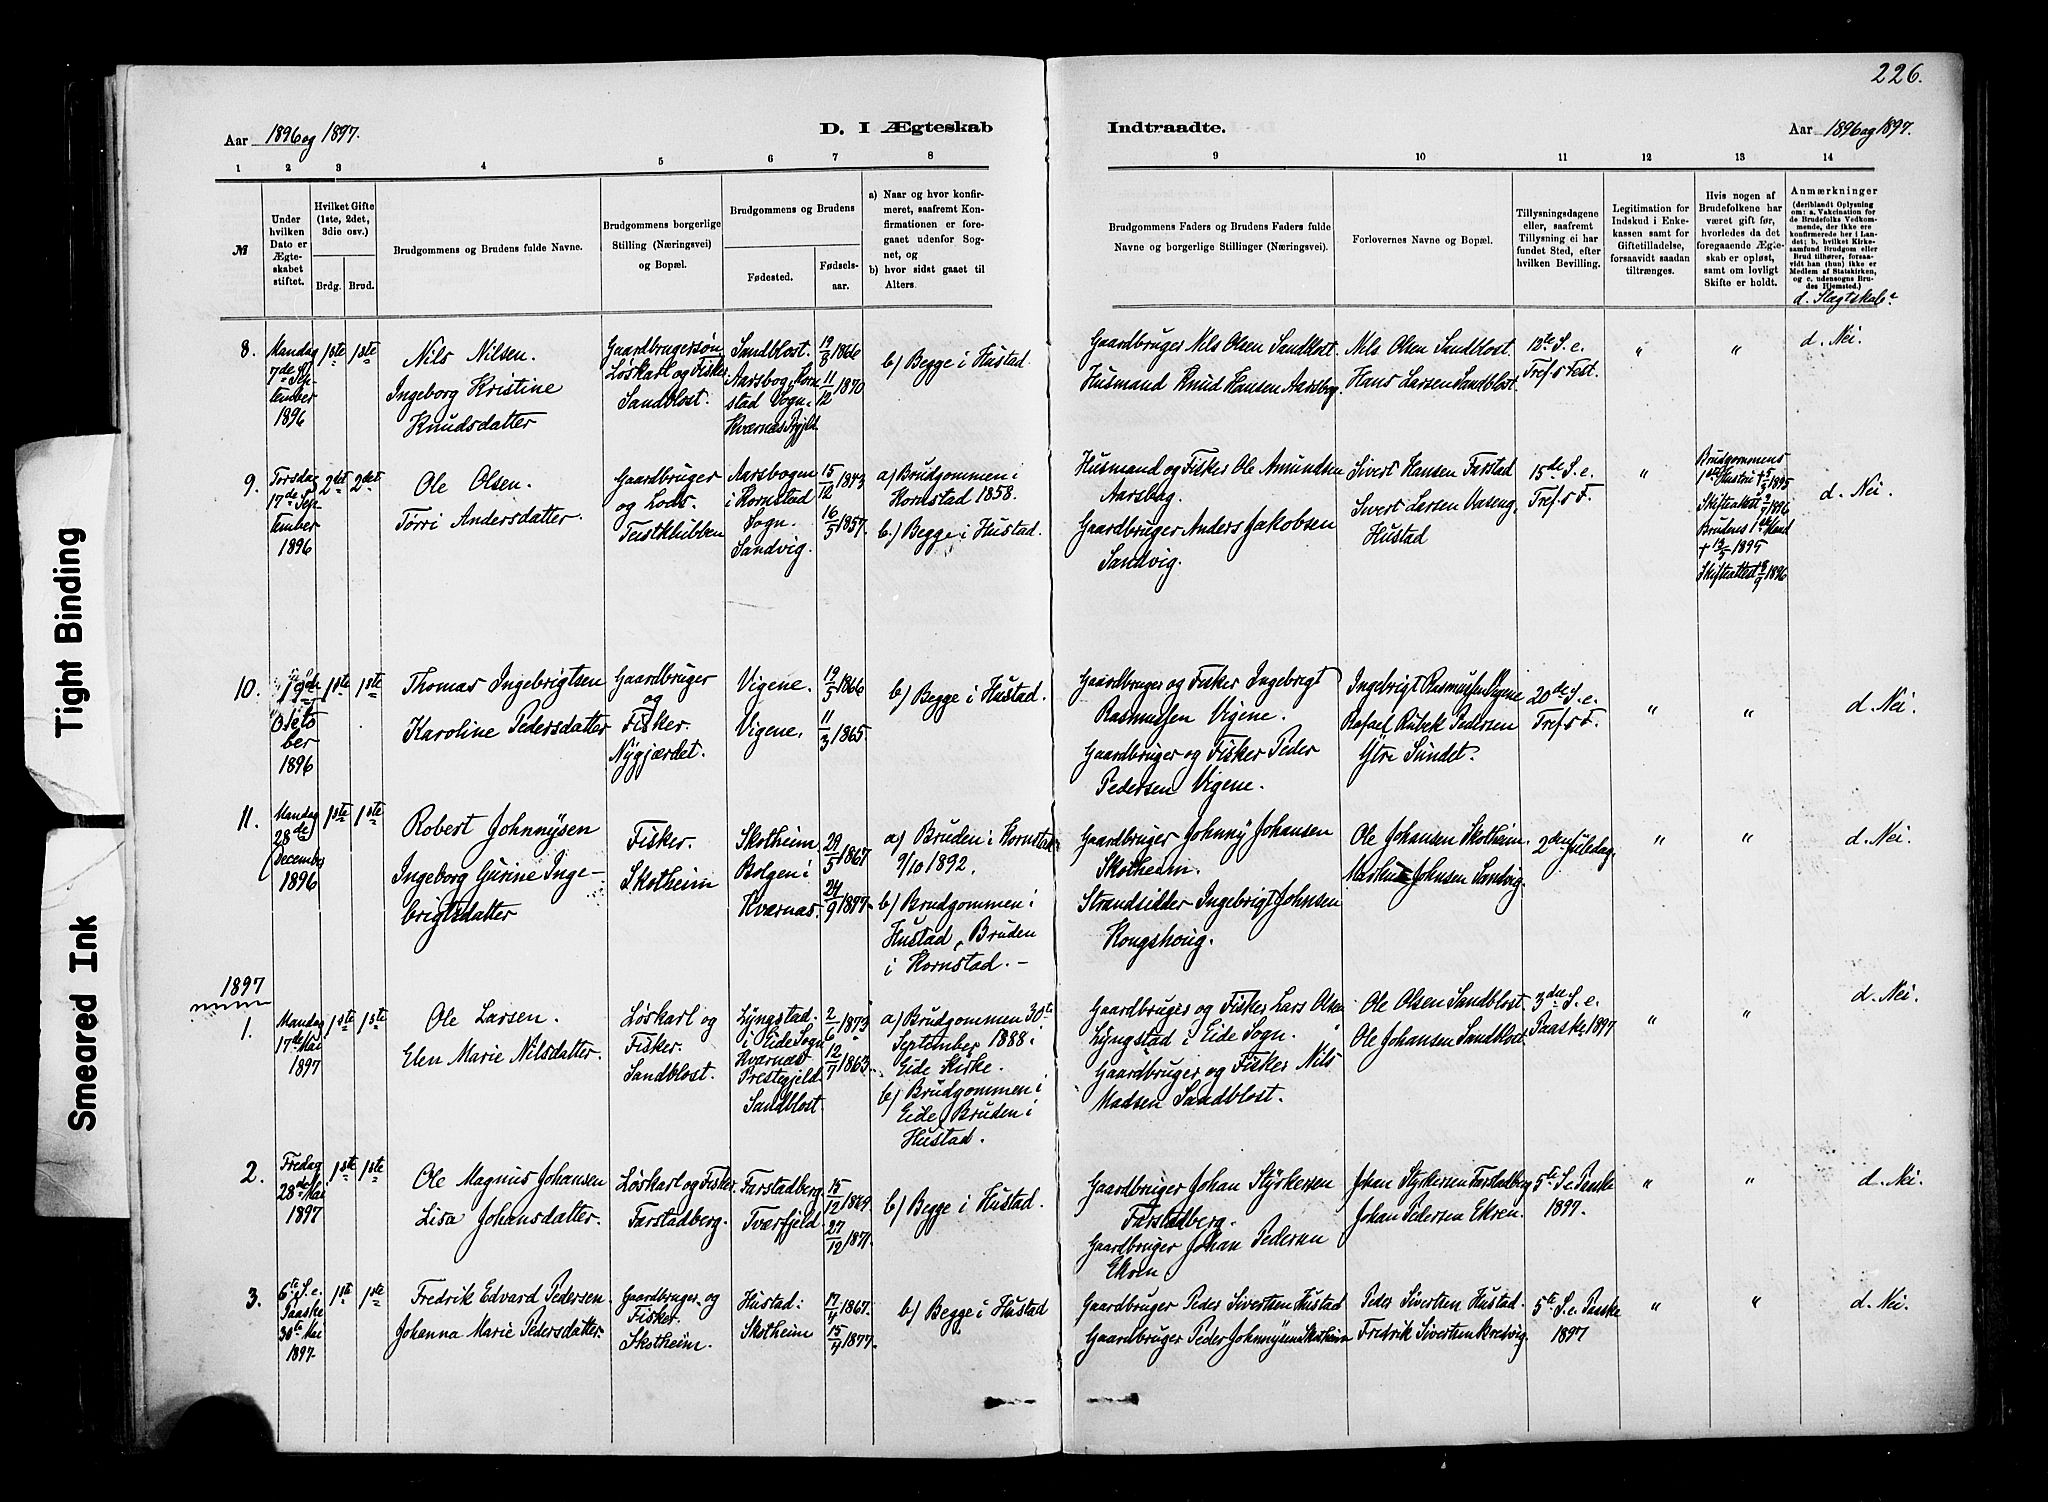 226.
Aar 1896 og 1897.
D. I Ægteskab
Indtraadte.
Aar 1896 og 1897.
1 2 3 4 5 6 7 8
9 10 11 12 13 14
№
Under hvilken Dato er Ægteskabet stiftet.
Hvilket Gifte (1ste, 2det, 3die osv.)
Brdg. Brud.
Brudgommens og Brudens fulde Navne.
Brudgommens borgerlige Stilling (Næringsvei) og Bopæl.
Brudgommens og Brudens
Fødested.
Fødsels-aar.
a) Naar og hvor konfirmeret, saafremt Konfirmationen er foregaaet udenfor Sognet, og
b) hvor sidst gaaet til Alters.
Brudgommens Faders og Brudens Faders fulde Navne og borgerlige Stillinger (Næringsvei).
Forlovernes Navne og Bopæl.
Tillysningsdagene eller, saafremt Tillysning ei har fundet Sted, efter hvilken Bevilling.
Legitimation for Indskud i Enkekassen samt for Giftetilladelse, forsaavidt saadan tiltrænges.
Hvis nogen af Brudefolkene har været gift før, hvorledes da det foregaaende Ægteskab er opløst, samt om lovligt Skifte er holdt.
Anmærkninger
(deriblandt Oplysning om: a. Vakcination for de Brudefolks Vedkommende, der ikke ere konfirmerede her i Landet; b. hvilket Kirkesamfund Brudgom eller Brud tilhører, forsaavidt han (hun) ikke er Medlem af Statskirken, og c. udensogns Brudes Hjemsted.)
d. Slægtskab
8.
Mandag
7de Sep-
tember
1896
1ste 1ste
Nils Nilsen.
Ingeborg Kristine
Knudsdatter
Gaardbrugersøn
Løskarl og Fisker
Sandblost.
Sandblost.
Aarsbog, Korn-
stad Sogn.
Kværnes Pgjld
19/8 1866
11/12 1870
b) Begge i Hustad
Gaardbruger Nils Olsen Sandblost.
Husmand Knud Hansen Aarsbog.
Nils Olsen Sandblost.
Hans Larsen Sandblost.
Tref.s Fest.
"
"
d. Nei.
9.
Torsdag
17de Sep-
tember
1896
2det 2det
Ole Olsen.
Tørri Andersdatter.
Gaardbruger
og Lods.
Teistklubben
Aarsbogen
i Kornstad
Sogn.
Sandvig.
15/12 1843
16/5 1857.
a) Brudgommen i
Kornstad 1858.
b.) Begge i Hustad.
Husmand og Fisker Ole Amundsen
Aarsbog.
Gaardbruger Anders Jakobsen
Sandvig.
Sivert Hansen Farstad
Sivert Larsen Vaseng,
Hustad
15de S. e.
Tref.s F.
"
Brudgommens
1ste Hustru † 5/3 1895
Brudens 1ste Mand
1895
Skifteattest 8/9 1896
d. Nei.
10.
19de
Okto
ber
1896
1ste 1ste
Thomas Ingebrigtsen
Karoline Pedersdatter
Gaardbruger
og
Fisker.
Nygjærdet.
Vigene.
Vigene.
19/5 1866
11/3 1865
b) Begge i Hustad.
Gaardbruger og Fisker Ingebrigt
Rasmussen Vigene.
Gaardbruger og Fisker Peder
Pedersen Vigene.
Ingebrigt Rasmussen Vigene
Rafael Rübek Pedersen
Ytre Sundet.
20de S. e.
Tref.s F.
"
"
d. Nei.
11.
Mandag
28de
December
1896
1ste 1ste
Robert Johnnysen
Ingeborg Gurine Inge-
brigtsdatter
Fisker.
Skotheim
Skotheim
Bolgen i
Kværnæs.
29/5 1867
24/9 1877.
a) Bruden i Kornstad
9/10 1892.
b) Brudgommen i
Hustad, Bruden
i Kornstad. -
Gaardbruger Johnny Johansen
Skotheim.
Strandsidder Ingebrigt Johnsen
Kongshoug.
Ole Johansen Skotheim.
Johnsen Sandvig.
2den Juledag.
"
"
d. Nei.
1897
1.
Mandag
17de Mai
1897
1ste 1ste
Ole Larsen.
Elen Marie Nilsdatter.
Løskarl og
Fisker.
Sandblost.
Lyngstad.
i Eide Sogn
Kværnæs
Prestegjeld
Sandblost
2/6 1873
12/7 1863.
a) Brudgommen 30te
September 1888 i
Eide Kirke.
b) Brudgommen i
Eide, Bruden i
Hustad.
Gaardbruger og Fisker Lars Olsen
Lyngstad i Eide Sogn.
Gaardbruger og Fisker Nils
Madsen Sandblost.
Ole Olsen Sandblost.
Ole Johansen Sandblost
3die S. e.
Paaske 1897
"
"
d. Nei.
2.
Fredag
28de Mai
1897
1ste 1ste
Ole Magnus Johansen
Lisa Johansdatter.
Løskarl og Fisker.
Farstadberg.
Farstadberg
Tværfjeld
15/12 1869
27/12 1871.
b) Begge i Hustad.
Gaardbruger Johan Styrkersen
Farstadberg.
Gaardbruger Johan Pedersen
Ekren
Johan Styrkersen Farstadberg
Johan Pedersen Ekren.
5te S. e Paaske
1897.
"
"
d. Nei.
3.
6te S. e.
Paaske
30te Mai
1897.
1ste 1ste
Fredrik Edvard Pedersen.
Johanna Marie Pedersdatter.
Gaardbruger og
Fisker.
Skotheim.
Hustad.
Skotheim
17/4 1867.
15/4 1877.
b) Begge i Hustad
Gaardbruger Peder Sivertsen Hustad
Gaardbruger Peder Johnnysen Skotheim
Peder Sivertsen Hustad.
Fredrik Sivertsen
5te S. e. Paaske
1897
"
"
d. Nei.
Tight Binding
Smeared Ink